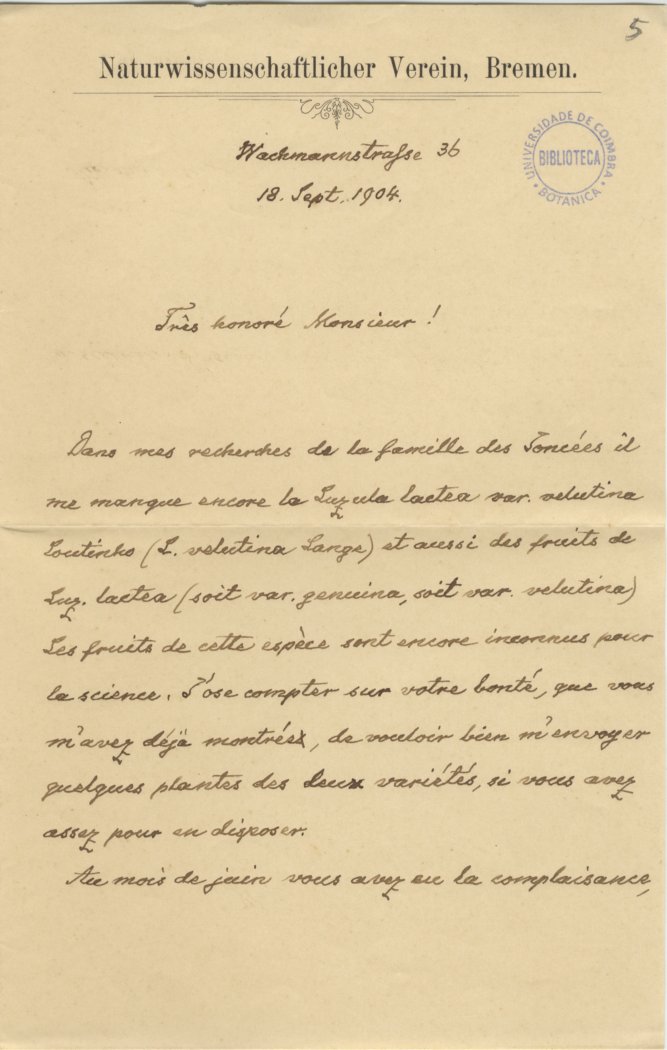 5
Naturwissenschaftlicher Verein, Bremen.
UNIVERSIDADE DE COIMBRA
BIBLIOTECA
BOTANICA
Wachmannstrasse 36
18. Sept. 1904.
Très honoré Monsieur !
Dans mes recherches de la famille des Joncées il
me manque encore la Luzula lactea var. velutina
Coutinho (L. velutina Lange) et aussi des fruits de
Luz. lactea (soit var. genuina, soit var. velutina)
Les fruits de cette espèce sont encore inconnus pour
la science. J'ose compter sur votre bonté, que vous
m'avez déjà montrée, de vouloir bien m'envoyer
quelques plantes des deux variétés, si vous avez
assez pour en disposer.
Au mois de juin vous avez eu la complaisance,